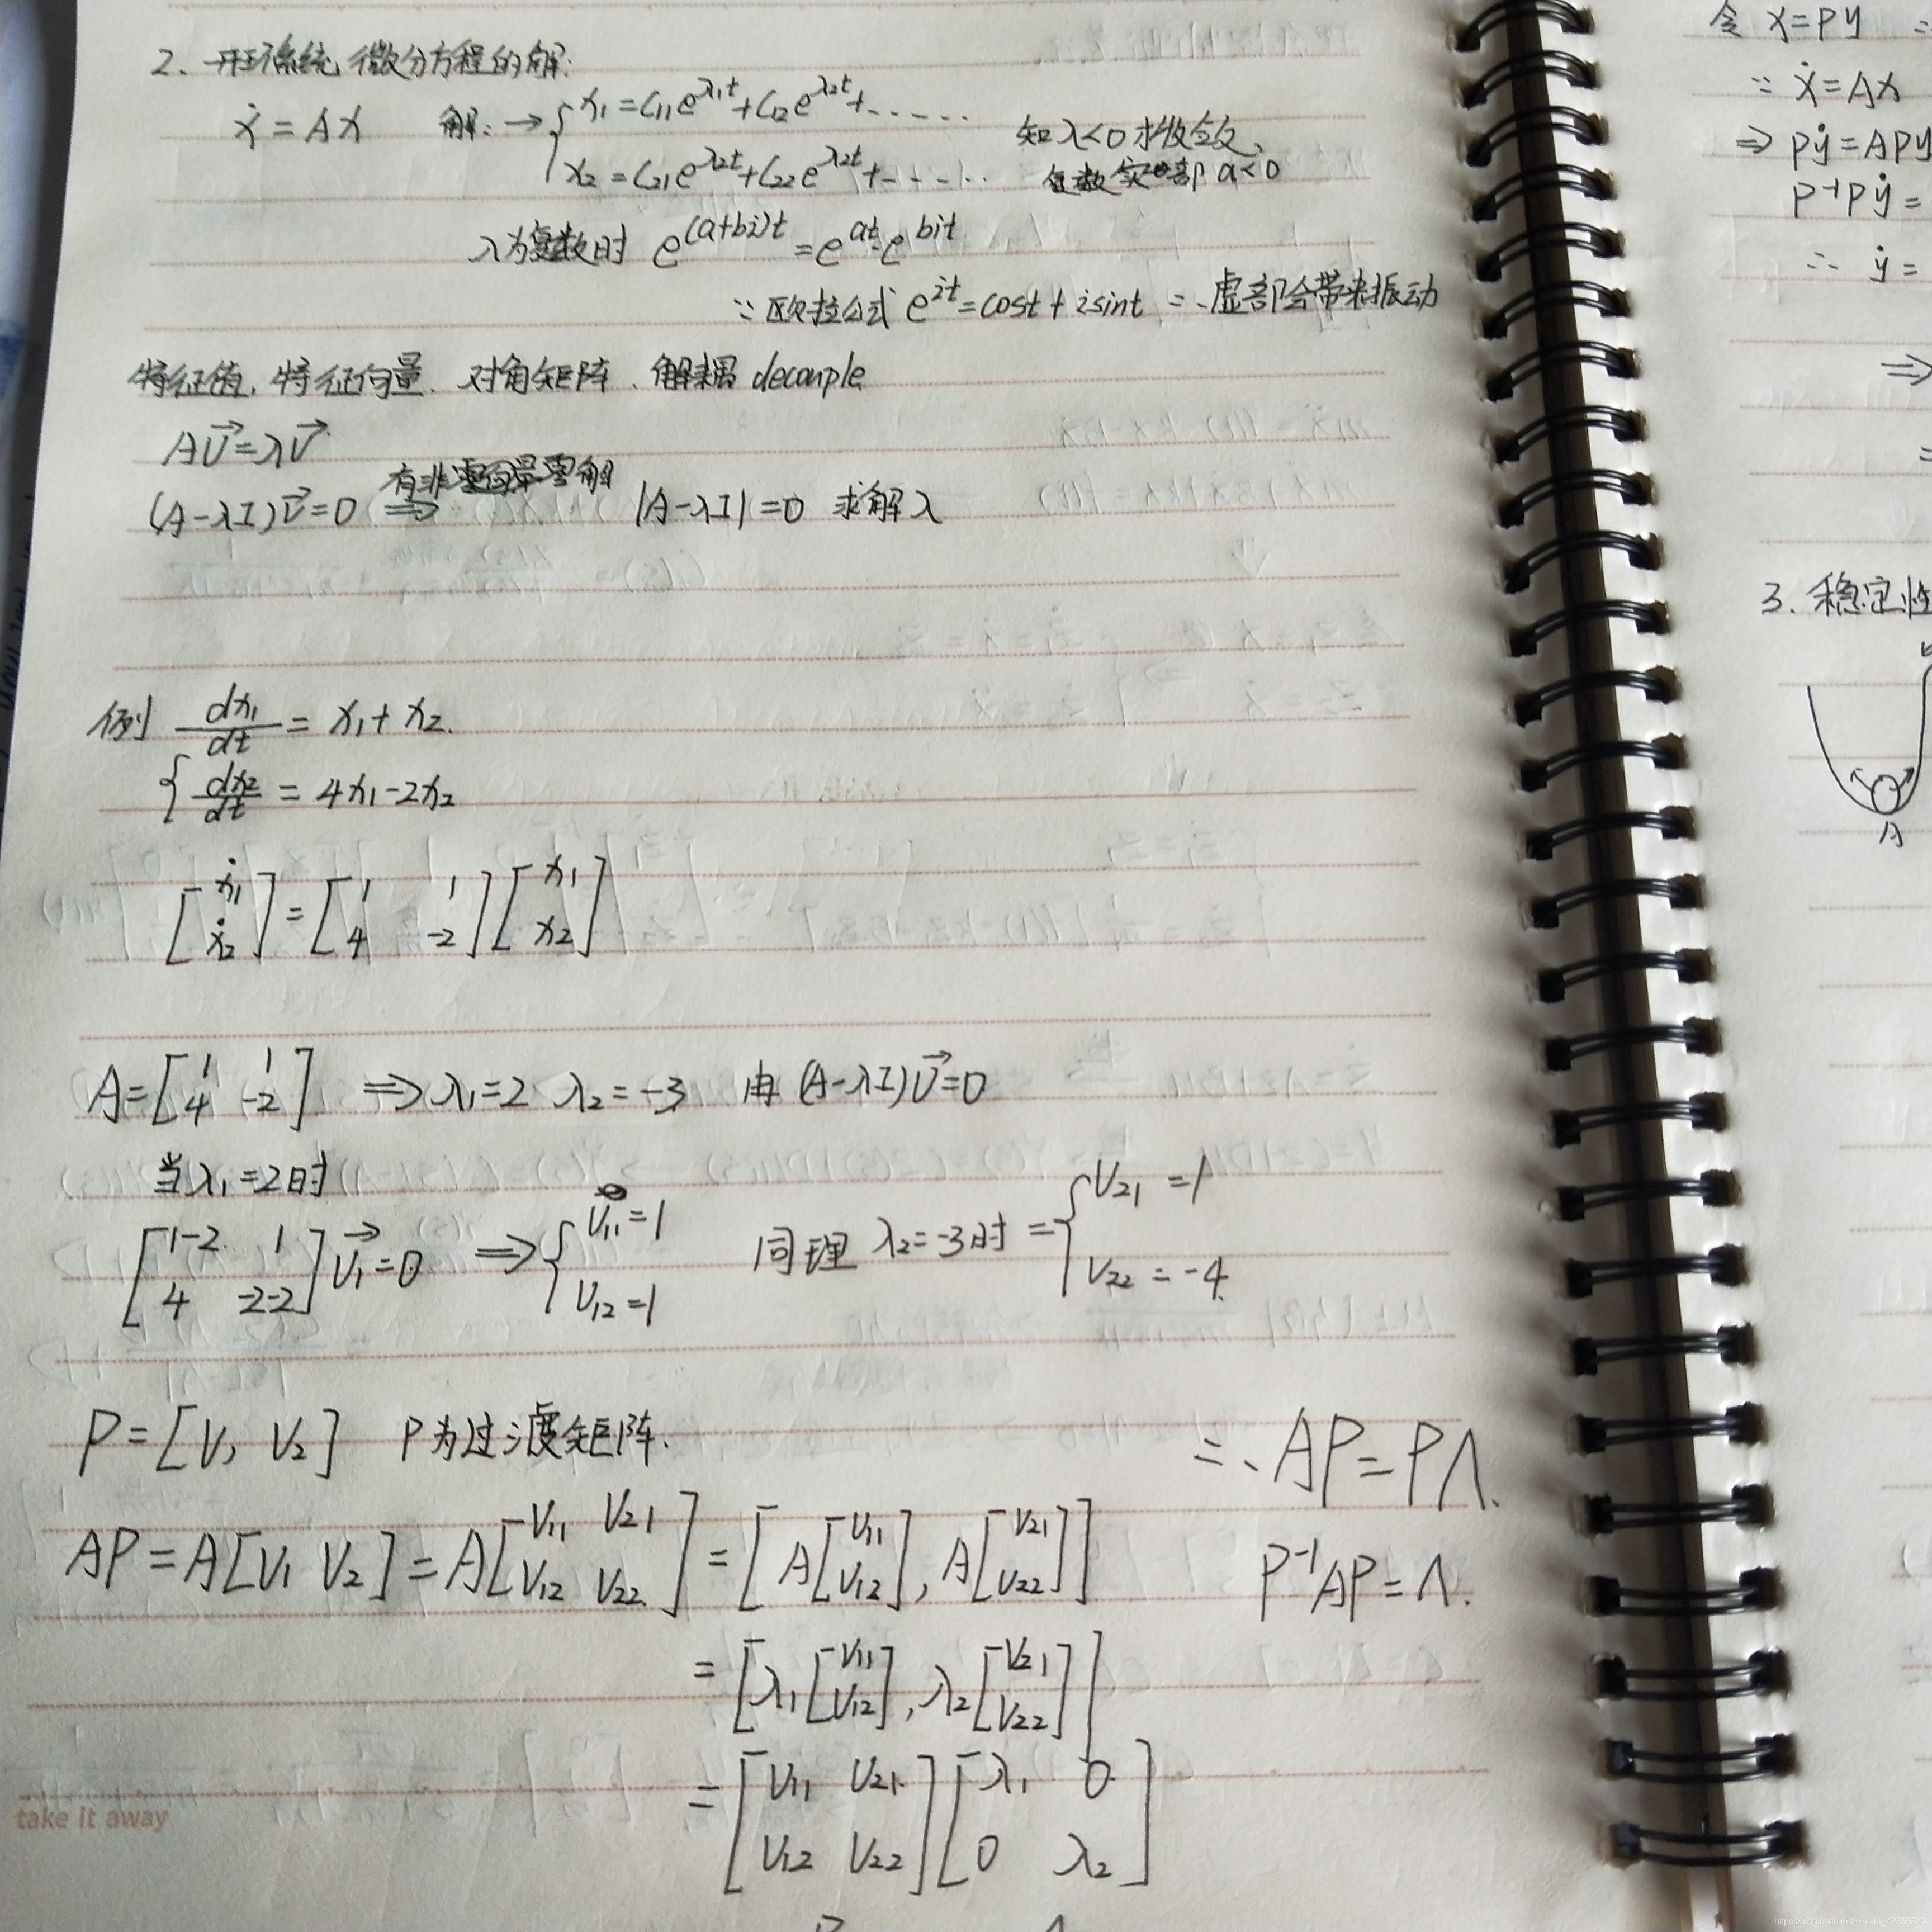 2. 开环系统,微分方程的解:
ẋ = Ax 解: → { x₁ = C₁₁e^λ₁t + C₁₂e^λ₂t + ......
x₂ = C₂₁e^λ₂t + C₂₂e^λ₂t + ......
知 λ<0 才收敛、
复数实部 a<0
λ为复数时 e^(a+bi)t = e^at·e^bit
∵ 欧拉公式 e^it = cost + isint ∴ 虚部会带来振动
特征值, 特征向量. 对角矩阵、解耦 decouple
Av⃗ = λv⃗
(A-λI)v⃗ = 0 有非零解 ⇒ |A-λI| = 0 求解 λ
例 { dx₁/dt = x₁ + x₂.
dx₂/dt = 4x₁ - 2x₂
[ẋ₁; ẋ₂] = [1 1; 4 -2][x₁; x₂]
A = [1 1; 4 -2] ⇒ λ₁ = 2 λ₂ = -3 由 (A-λI)v⃗ = 0
当 λ₁ = 2 时
[1-2 1; 4 -2-2] v⃗₁ = 0 ⇒ { v₁₁ = 1; v₁₂ = 1 同理 λ₂ = -3 时 = { v₂₁ = 1; v₂₂ = -4
P = [v₁ v₂] P为过渡矩阵.
AP = A[v₁ v₂] = A[v₁₁ v₂₁; v₁₂ v₂₂] = [A[v₁₁; v₁₂], A[v₂₁; v₂₂]]
= [λ₁[v₁₁; v₁₂], λ₂[v₂₁; v₂₂]]
= [v₁₁ v₂₁; v₁₂ v₂₂][λ₁ 0; 0 λ₂]
∴ AP = PΛ.
P⁻¹AP = Λ.
take it away
令 x = Py
∵ ẋ = Ax
⇒ Pẏ = APy
P⁻¹Pẏ =
∴ ẏ =
⇒
3. 稳定性
A